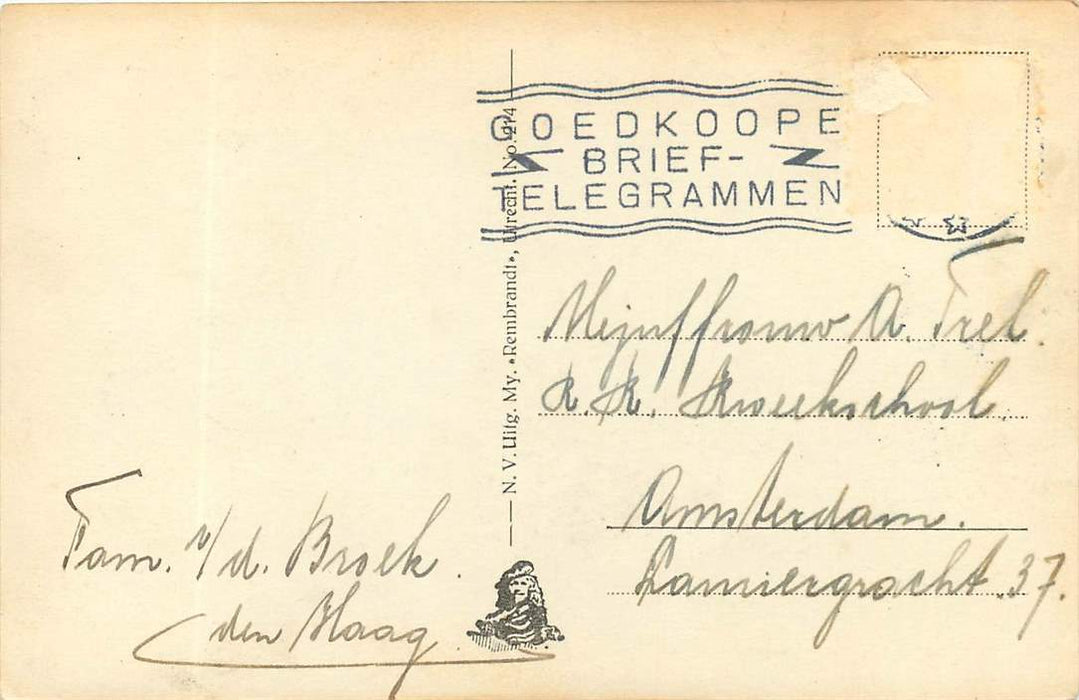 GOEDKOOPE
BRIEF-
TELEGRAMMEN
N. V. Uitg. My. »Rembrandt», Utrecht. No. 214
Mejuffrouw A. Trel.
R. K. Kweekschool.
Amsterdam.
Lauriergracht. 37.
Fam. v/d. Broek.
den Haag.